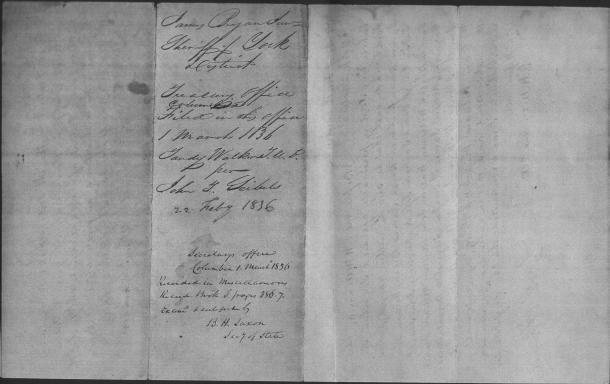 James Bryan Junr
Sheriff of York
District
Treasury Office
Columbia
Filed in this office
1 March 1836
Tandy Walker T. U. D.
per
John J. Seibels
22 Feby 1836
Secretarys office
Columbia 1 March 1836
Recorded in Miscellaneous
Record Book S pages 386-7.
Examd &
B. H. Saxon
Secy of State